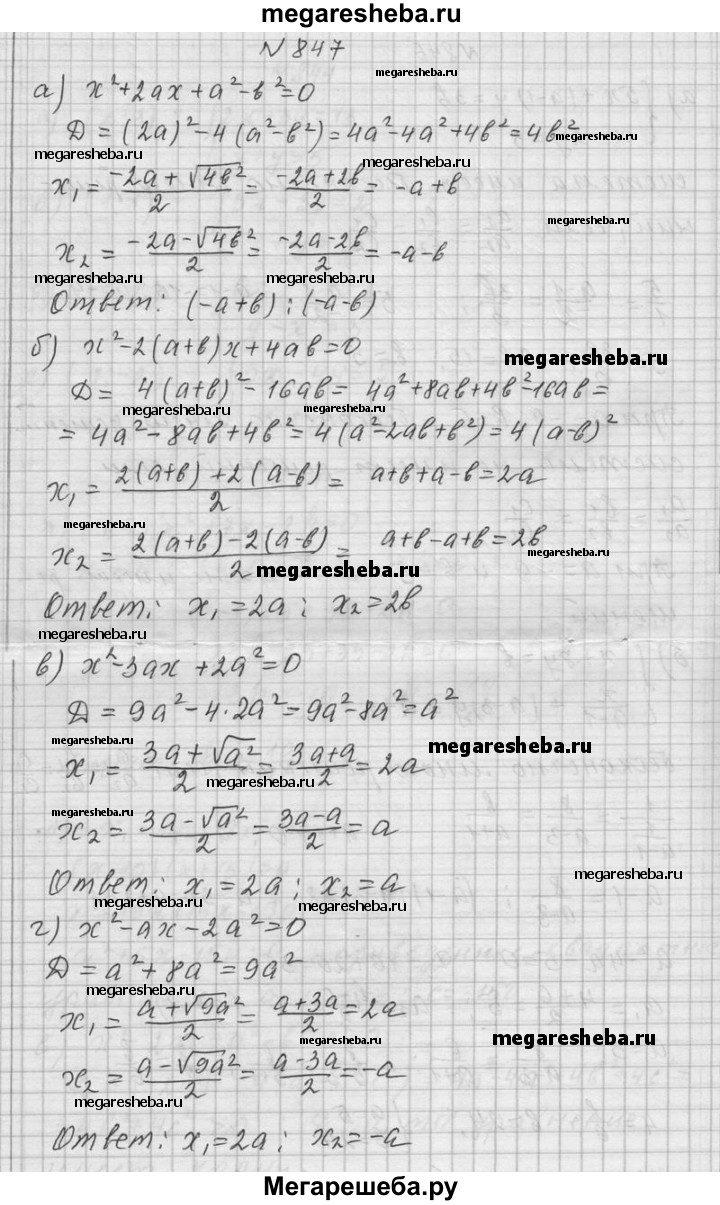 megaresheba.ru
N 847
megaresheba.ru
а) x²+2ax+a²-в²=0
D = (2a)²-4(a²-в²)=4a²-4a²+4в²=4в²
megaresheba.ru
megaresheba.ru
megaresheba.ru
x₁ = (-2a+√4в²)/2 = (-2a+2в)/2 = -a+в
megaresheba.ru
x₂ = (-2a-√4в²)/2 = (-2a-2в)/2 = -a-в
megaresheba.ru
megaresheba.ru
Ответ: (-a+в) ; (-a-в)
б) x²-2(a+в)x+4aв=0
megaresheba.ru
D = 4(a+в)²-16aв= 4a²+8aв+4в²-16aв=
megaresheba.ru
megaresheba.ru
= 4a²-8aв+4в²=4(a²-2aв+в²)=4(a-в)²
x₁ = (2(a+в)+2(a-в))/2 = a+в+a-в=2a
megaresheba.ru
megaresheba.ru
x₂ = (2(a+в)-2(a-в))/2 = a+в-a+в=2в
megaresheba.ru
megaresheba.ru
Ответ: x₁=2a ; x₂=2в
megaresheba.ru
megaresheba.ru
в) x²-3ax+2a²=0
D = 9a²-4·2a²=9a²-8a²=a²
megaresheba.ru
megaresheba.ru
x₁ = (3a+√a²)/2 = (3a+a)/2 = 2a
megaresheba.ru
megaresheba.ru
x₂ = (3a-√a²)/2 = (3a-a)/2 = a
megaresheba.ru
Ответ: x₁=2a ; x₂=a
megaresheba.ru
megaresheba.ru
г) x²-ax-2a²=0
D=a²+8a²=9a²
megaresheba.ru
x₁ = (a+√9a²)/2 = (a+3a)/2 = 2a
megaresheba.ru
megaresheba.ru
x₂ = (a-√9a²)/2 = (a-3a)/2 = -a
megaresheba.ru
Ответ: x₁=2a ; x₂=-a
Мегарешеба.ру